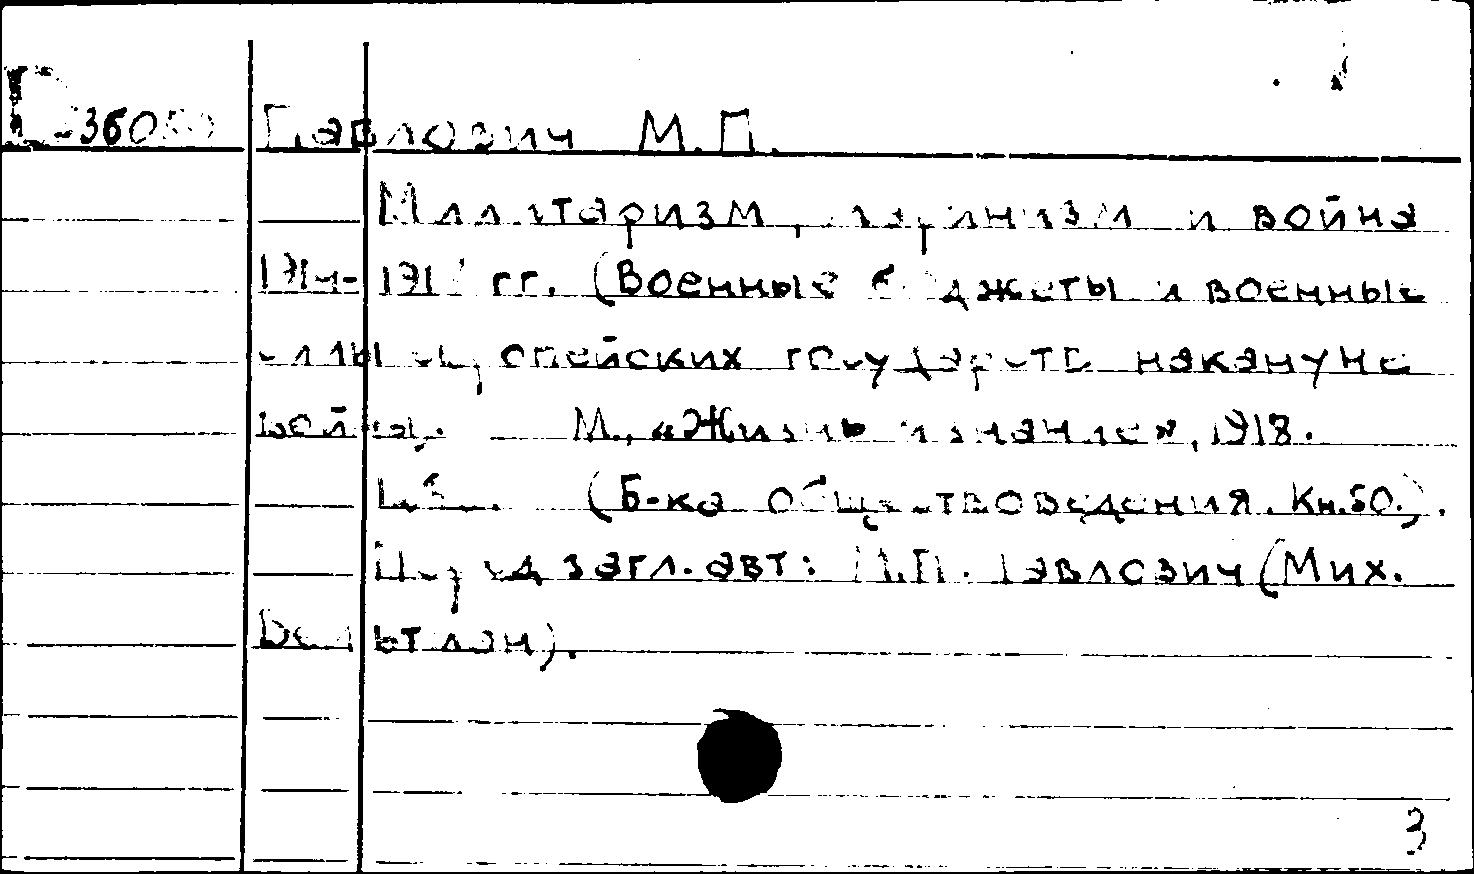 Павлович М.П.
Милитаризм, маринизм и война
1914-1918 гг. (Военные бюджеты и военные
силы европейских государств накануне
войны). М., «Жизнь и знание», 1918.
(Б-ка обществоведения. Кн.50.).
Перед загл. авт: М.П. Павлович (Мих.
Вельтман).
3